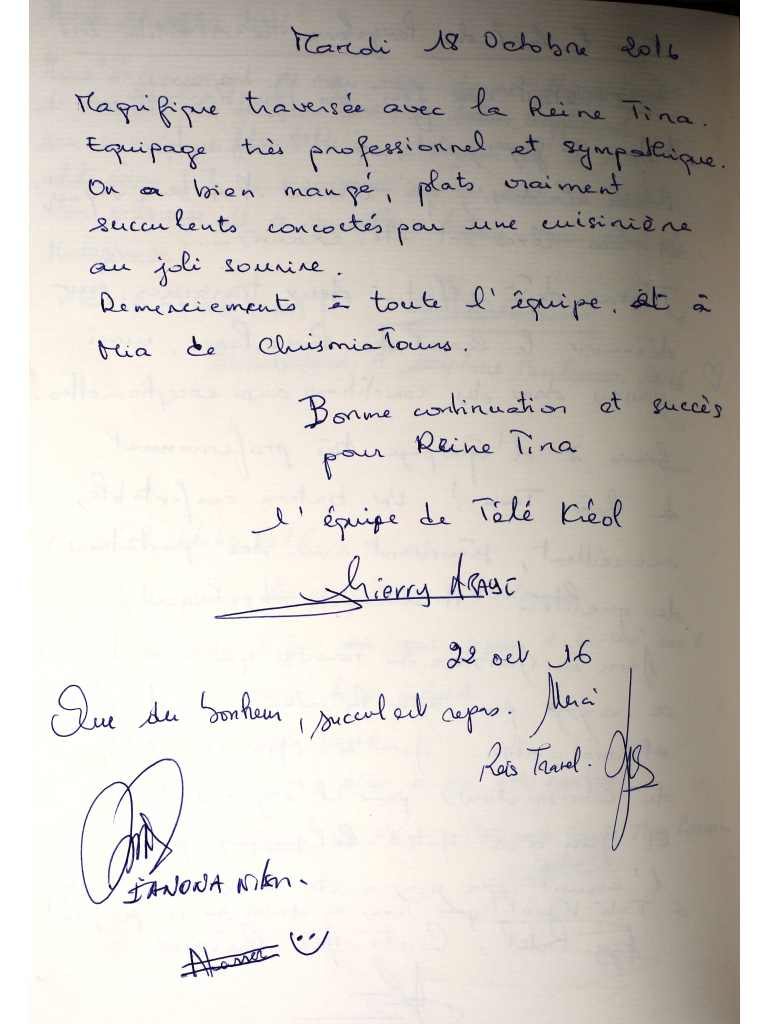 Mardi 18 Octobre 2016
Magnifique traversée avec la Reine Tina.
Equipage très professionnel et sympathique.
On a bien mangé, plats vraiment
succulents concoctés par une cuisinière
au joli sourire.
Remerciements à toute l'équipe. et à
Mia de ChrismiaTours.
Bonne continuation et succès
pour Reine Tina
l'équipe de Télé Kréol
Thierry ARAYE
22 oct 16
Que du bonheur, succulent repas. Merci
Réis Travel.